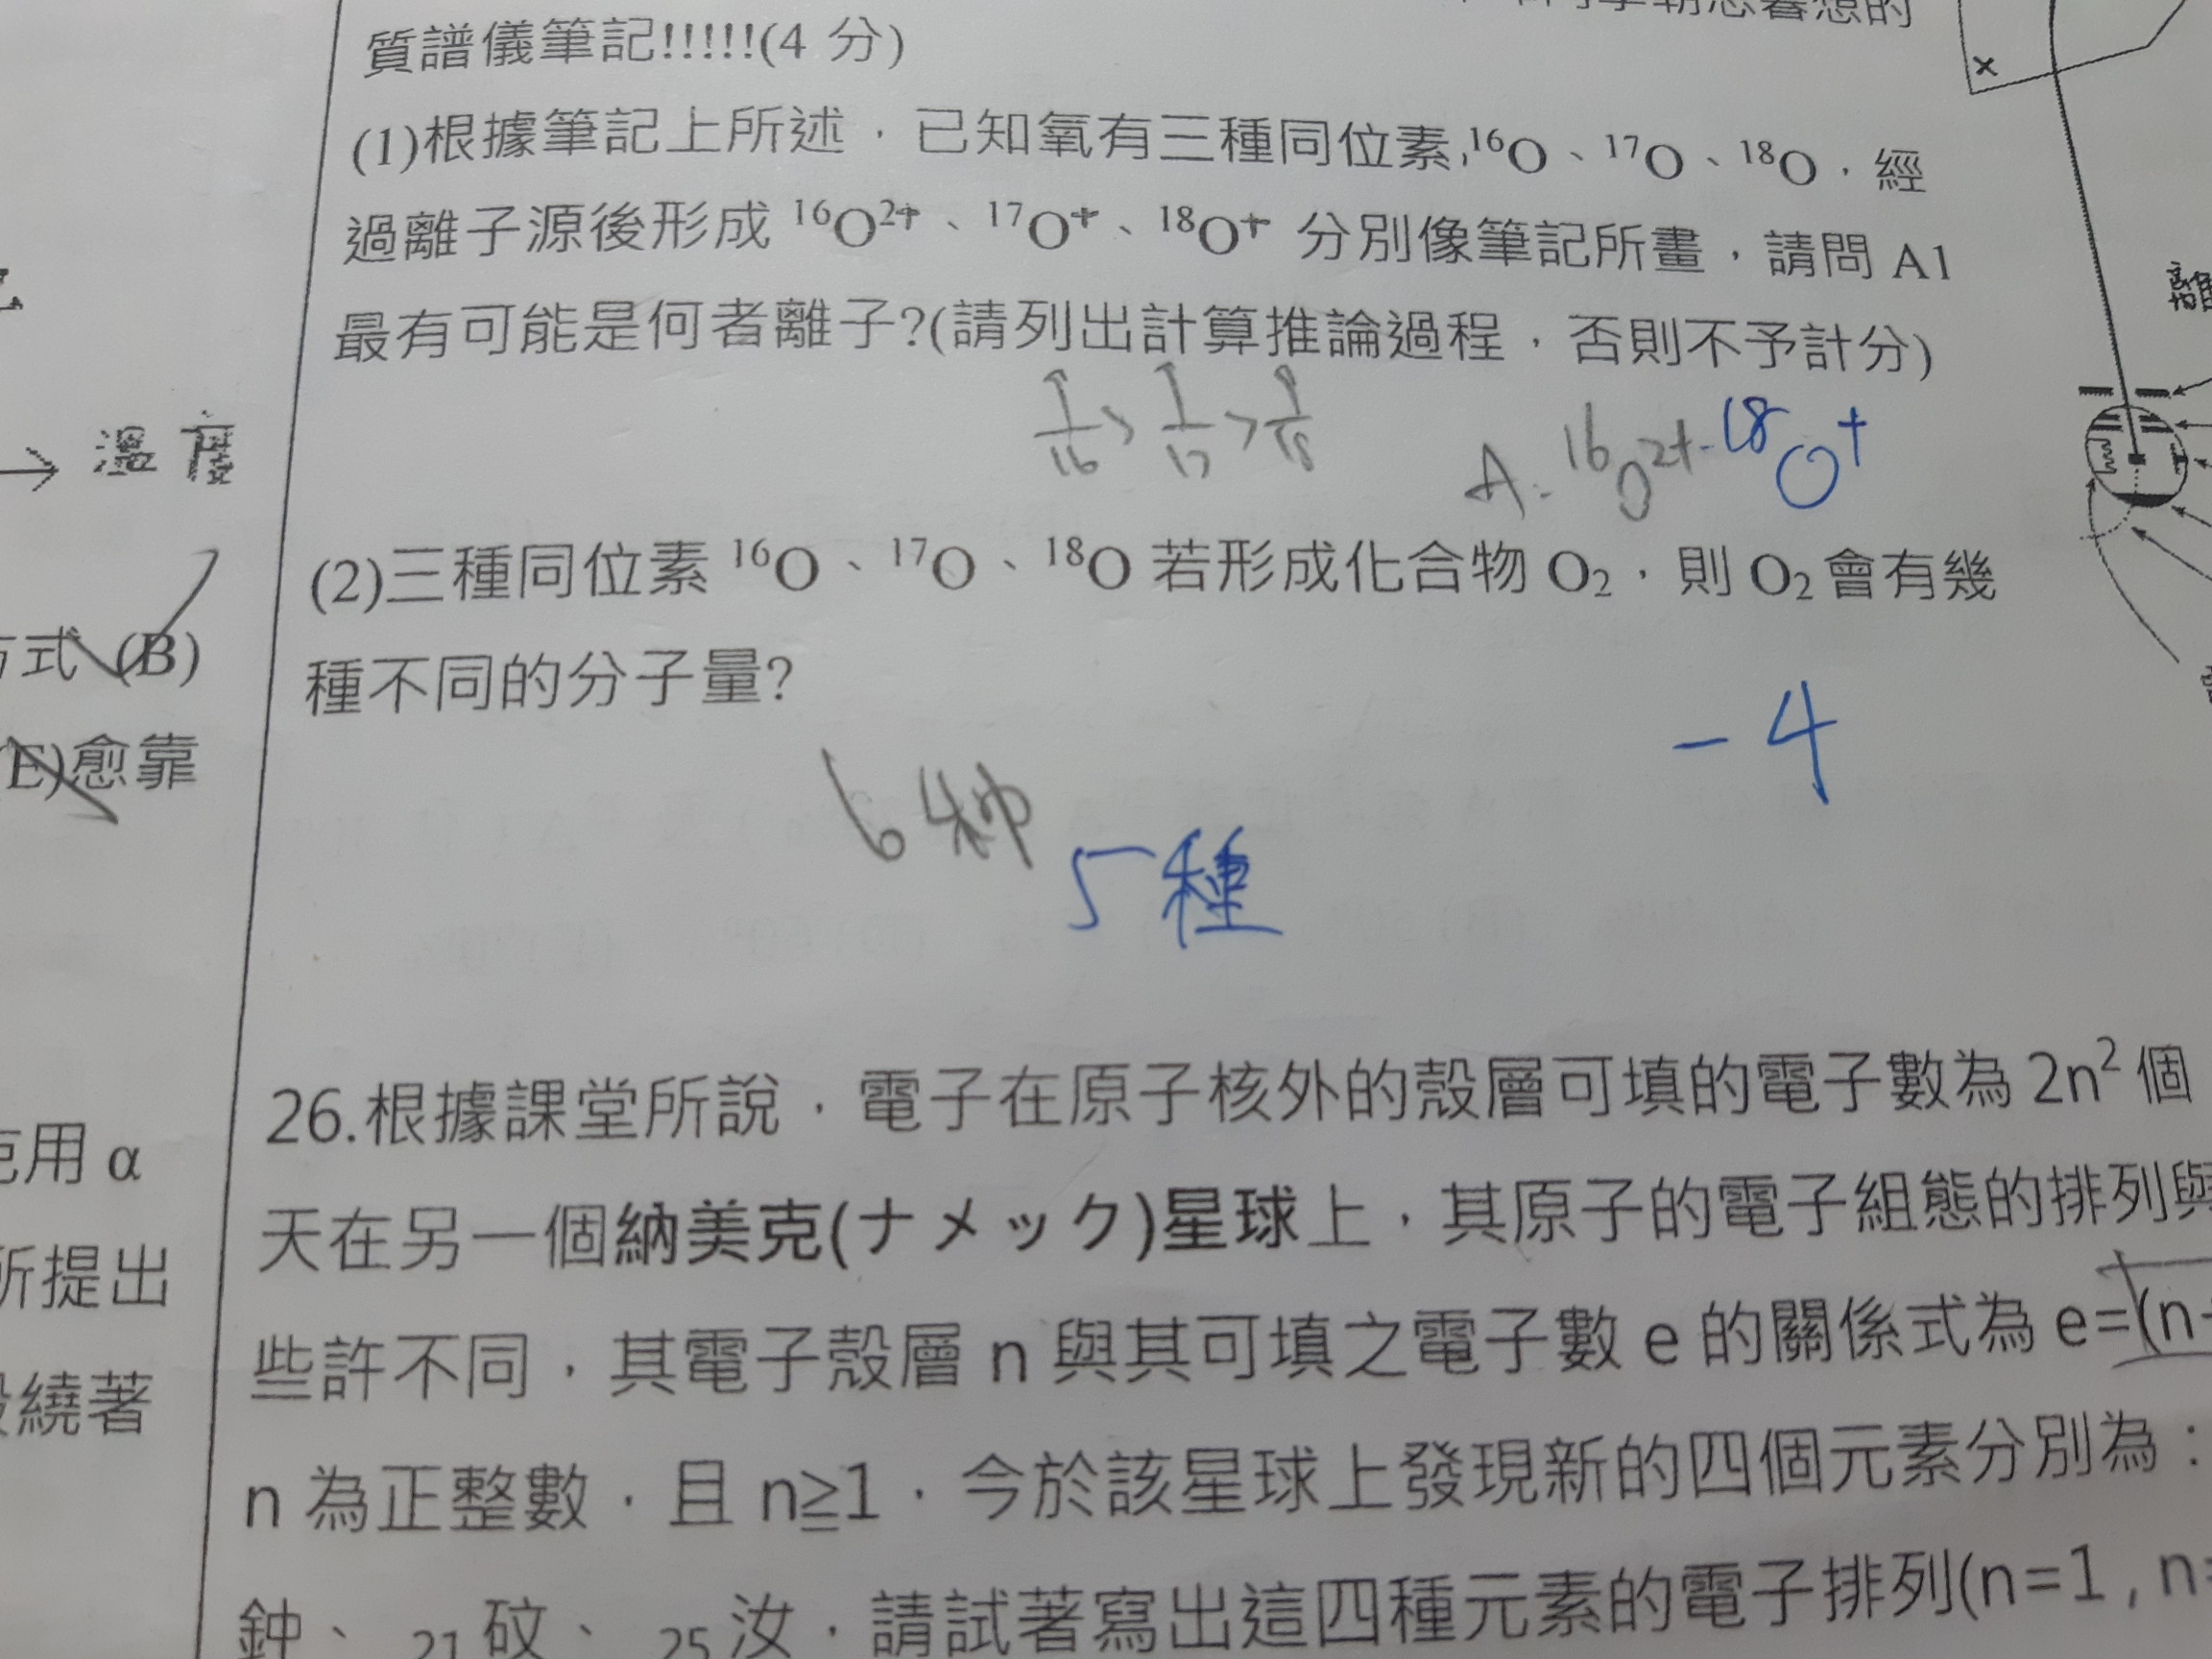 暮想的
質譜儀筆記!!!!!(4 分)
(1)根據筆記上所述，已知氧有三種同位素,¹⁶O、¹⁷O、¹⁸O，經
過離子源後形成 ¹⁶O²⁺、¹⁷O⁺、¹⁸O⁺ 分別像筆記所畫，請問 A1
最有可能是何者離子?(請列出計算推論過程，否則不予計分)
1/16 > 1/17 > 1/18
A: ¹⁶O²⁺ ¹⁸O⁺
(2)三種同位素 ¹⁶O、¹⁷O、¹⁸O 若形成化合物 O₂，則 O₂ 會有幾
種不同的分子量?
-4
6种
5種
26.根據課堂所說，電子在原子核外的殼層可填的電子數為 2n² 個
天在另一個納美克(ナメック)星球上，其原子的電子組態的排列與
些許不同，其電子殼層 n 與其可填之電子數 e 的關係式為 e=(n
n 為正整數，且 n≧1，今於該星球上發現新的四個元素分別為：
鈡、 ₂₁砇、 ₂₅汝，請試著寫出這四種元素的電子排列(n=1 , n
→ 溫度
式 (B)
(E)愈靠
用 α
所提出
繞著
×